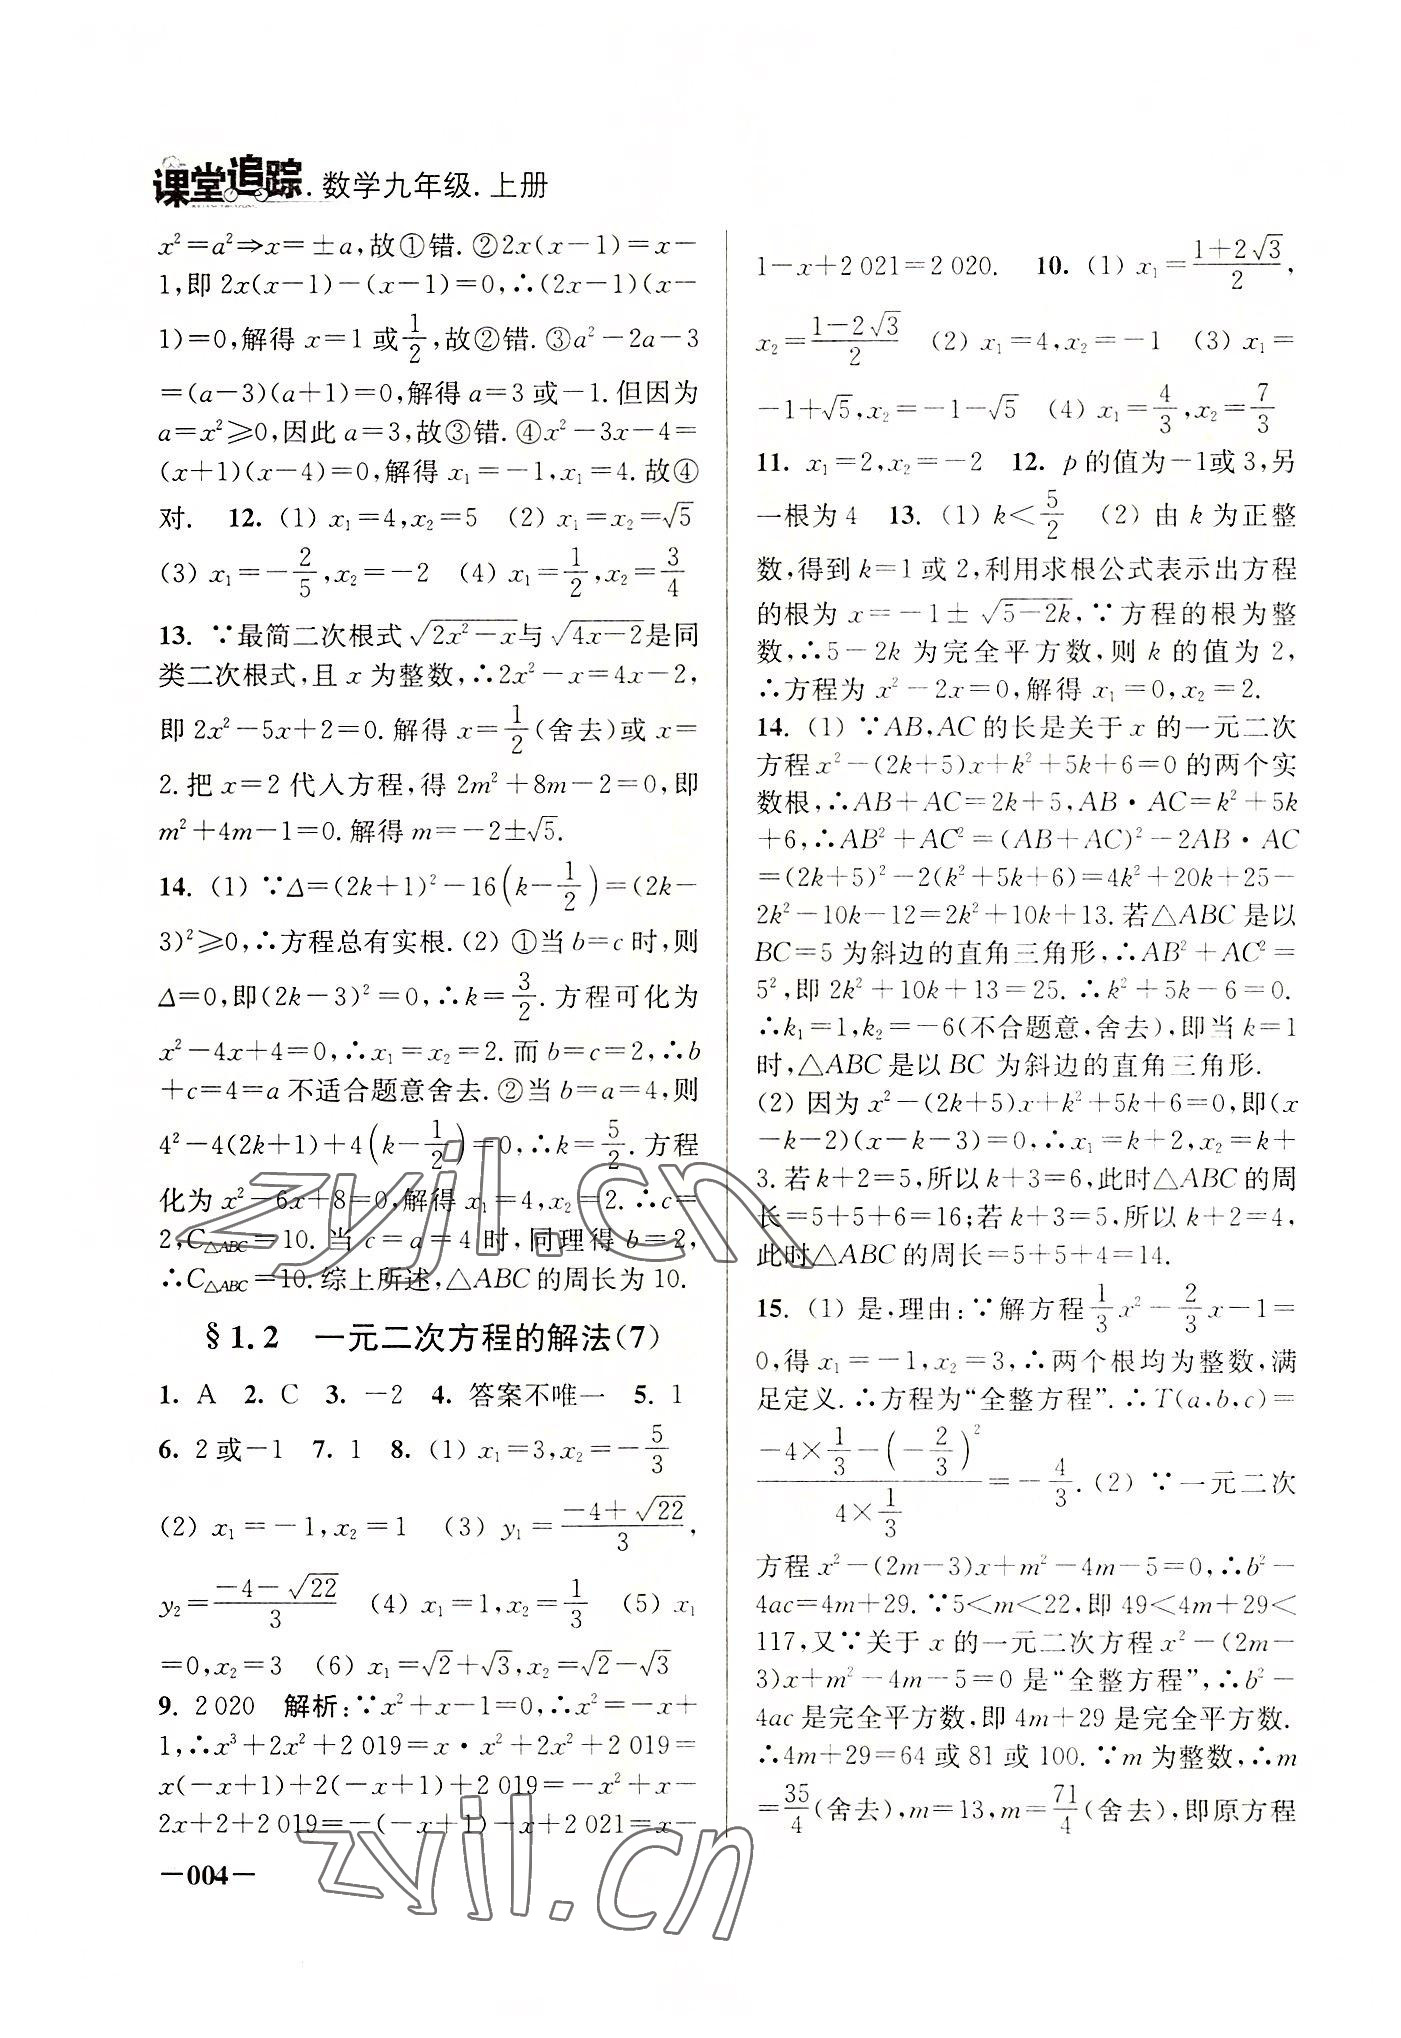 课堂追踪.数学九年级.上册
x²=a²⇒x=±a,故①错.②2x(x-1)=x-
1,即 2x(x-1)-(x-1)=0,∴(2x-1)(x-
1)=0,解得 x=1 或1/2,故②错.③a²-2a-3
=(a-3)(a+1)=0,解得 a=3 或-1.但因为
a=x²≥0,因此 a=3,故③错.④x²-3x-4=
(x+1)(x-4)=0,解得 x₁=-1,x₂=4.故④
对. 12. (1) x₁=4,x₂=5 (2) x₁=x₂=√5
(3) x₁=-2/5,x₂=-2 (4) x₁=1/2,x₂=3/4
13. ∵最简二次根式√(2x²-x)与√(4x-2)是同
类二次根式,且 x 为整数,∴2x²-x=4x-2,
即 2x²-5x+2=0.解得 x=1/2(舍去)或 x=
2.把 x=2 代入方程,得 2m²+8m-2=0,即
m²+4m-1=0.解得 m=-2±√5.
14. (1) ∵Δ=(2k+1)²-16(k-1/2)=(2k-
3)²≥0,∴方程总有实根.(2) ①当 b=c 时,则
Δ=0,即(2k-3)²=0,∴k=3/2.方程可化为
x²-4x+4=0,∴x₁=x₂=2.而 b=c=2,∴b
+c=4=a 不适合题意舍去.②当 b=a=4,则
4²-4(2k+1)+4(k-1/2)=0,∴k=5/2.方程
化为 x²-6x+8=0,解得 x₁=4,x₂=2.∴c=
2,C△ABC=10.当 c=a=4 时,同理得 b=2,
∴C△ABC=10.综上所述,△ABC 的周长为 10.
§1.2 一元二次方程的解法(7)
1. A 2. C 3. -2 4. 答案不唯一 5. 1
6. 2 或-1 7. 1 8. (1) x₁=3,x₂=-5/3
(2) x₁=-1,x₂=1 (3) y₁=(-4+√22)/3,
y₂=(-4-√22)/3 (4) x₁=1,x₂=1/3 (5) x₁
=0,x₂=3 (6) x₁=√2+√3,x₂=√2-√3
9. 2 020 解析:∵x²+x-1=0,∴x²=-x+
1,∴x³+2x²+2 019=x·x²+2x²+2 019=
x(-x+1)+2(-x+1)+2 019=-x²+x-
2x+2+2 019=-(-x+1)-x+2 021=x-
—004—
1-x+2 021=2 020. 10. (1) x₁=(1+2√3)/2,
x₂=(1-2√3)/2 (2) x₁=4,x₂=-1 (3) x₁=
-1+√5,x₂=-1-√5 (4) x₁=4/3,x₂=7/3
11. x₁=2,x₂=-2 12. p 的值为-1或 3,另
一根为 4 13. (1) k<5/2 (2) 由 k 为正整
数,得到 k=1 或 2,利用求根公式表示出方程
的根为 x=-1±√(5-2k),∵方程的根为整
数,∴5-2k 为完全平方数,则 k 的值为 2,
∴方程为 x²-2x=0,解得 x₁=0,x₂=2.
14. (1) ∵AB,AC 的长是关于 x 的一元二次
方程 x²-(2k+5)x+k²+5k+6=0 的两个实
数根,∴AB+AC=2k+5,AB·AC=k²+5k
+6,∴AB²+AC²=(AB+AC)²-2AB·AC
=(2k+5)²-2(k²+5k+6)=4k²+20k+25-
2k²-10k-12=2k²+10k+13.若△ABC 是以
BC=5 为斜边的直角三角形,∴AB²+AC²=
5²,即 2k²+10k+13=25.∴k²+5k-6=0.
∴k₁=1,k₂=-6(不合题意,舍去),即当 k=1
时,△ABC 是以 BC 为斜边的直角三角形.
(2) 因为 x²-(2k+5)x+k²+5k+6=0,即(x
-k-2)(x-k-3)=0,∴x₁=k+2,x₂=k+
3.若 k+2=5,所以 k+3=6,此时△ABC 的周
长=5+5+6=16;若 k+3=5,所以 k+2=4,
此时△ABC 的周长=5+5+4=14.
15. (1) 是,理由:∵解方程1/3x²-2/3x-1=
0,得 x₁=-1,x₂=3,∴两个根均为整数,满
足定义.∴方程为“全整方程”.∴T(a,b,c)=
(-4×1/3-(-2/3)²)/(4×1/3)=-4/3.(2) ∵一元二次
方程 x²-(2m-3)x+m²-4m-5=0,∴b²-
4ac=4m+29.∵5<m<22,即 49<4m+29<
117,又∵关于 x 的一元二次方程 x²-(2m-
3)x+m²-4m-5=0 是“全整方程”,∴b²-
4ac 是完全平方数,即 4m+29 是完全平方数.
∴4m+29=64 或 81 或 100.∵m 为整数,∴m
=35/4(舍去),m=13,m=71/4(舍去),即原方程
zyjl.cn
zyjl.cn